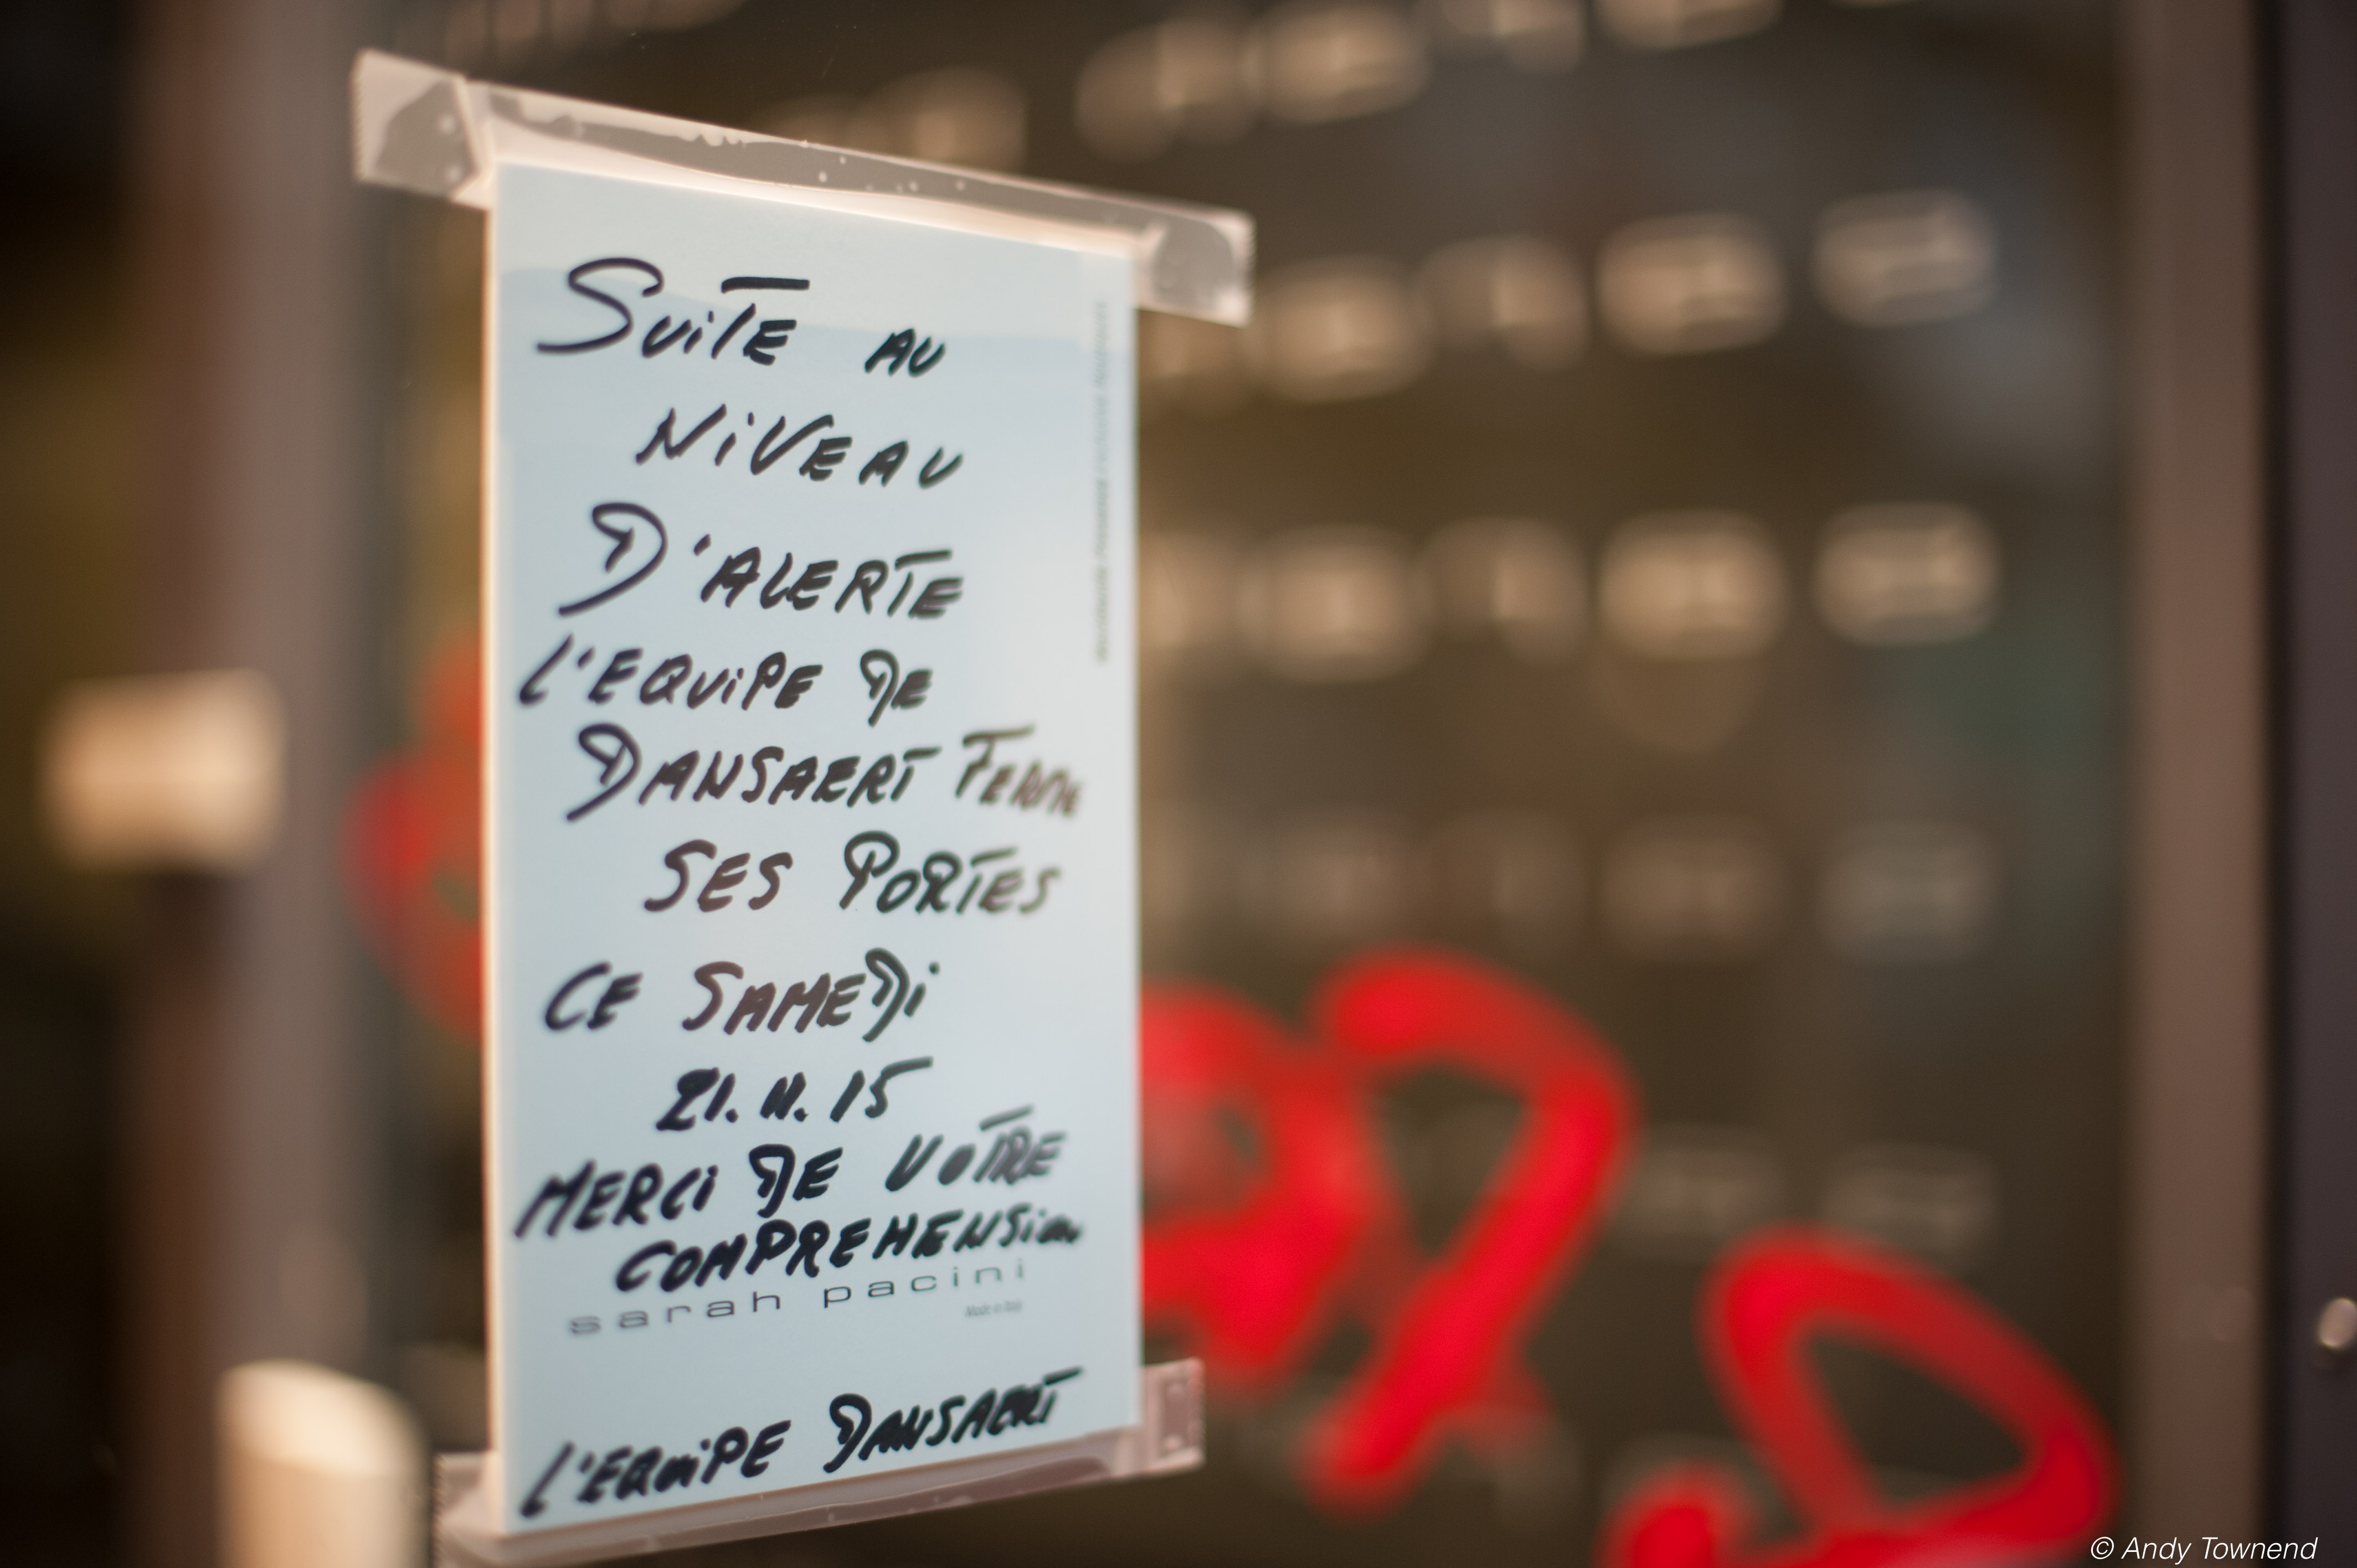 SUITE AU
NIVEAU
D'ALERTE
L'EQUIPE DE
DANSAERT FERME
SES PORTES
CE SAMEDI
21.11.15
MERCI DE VOTRE
COMPREHENSION
sarah pacini
Made in Italy
L'EQUIPE DANSAERT
© Andy Townend